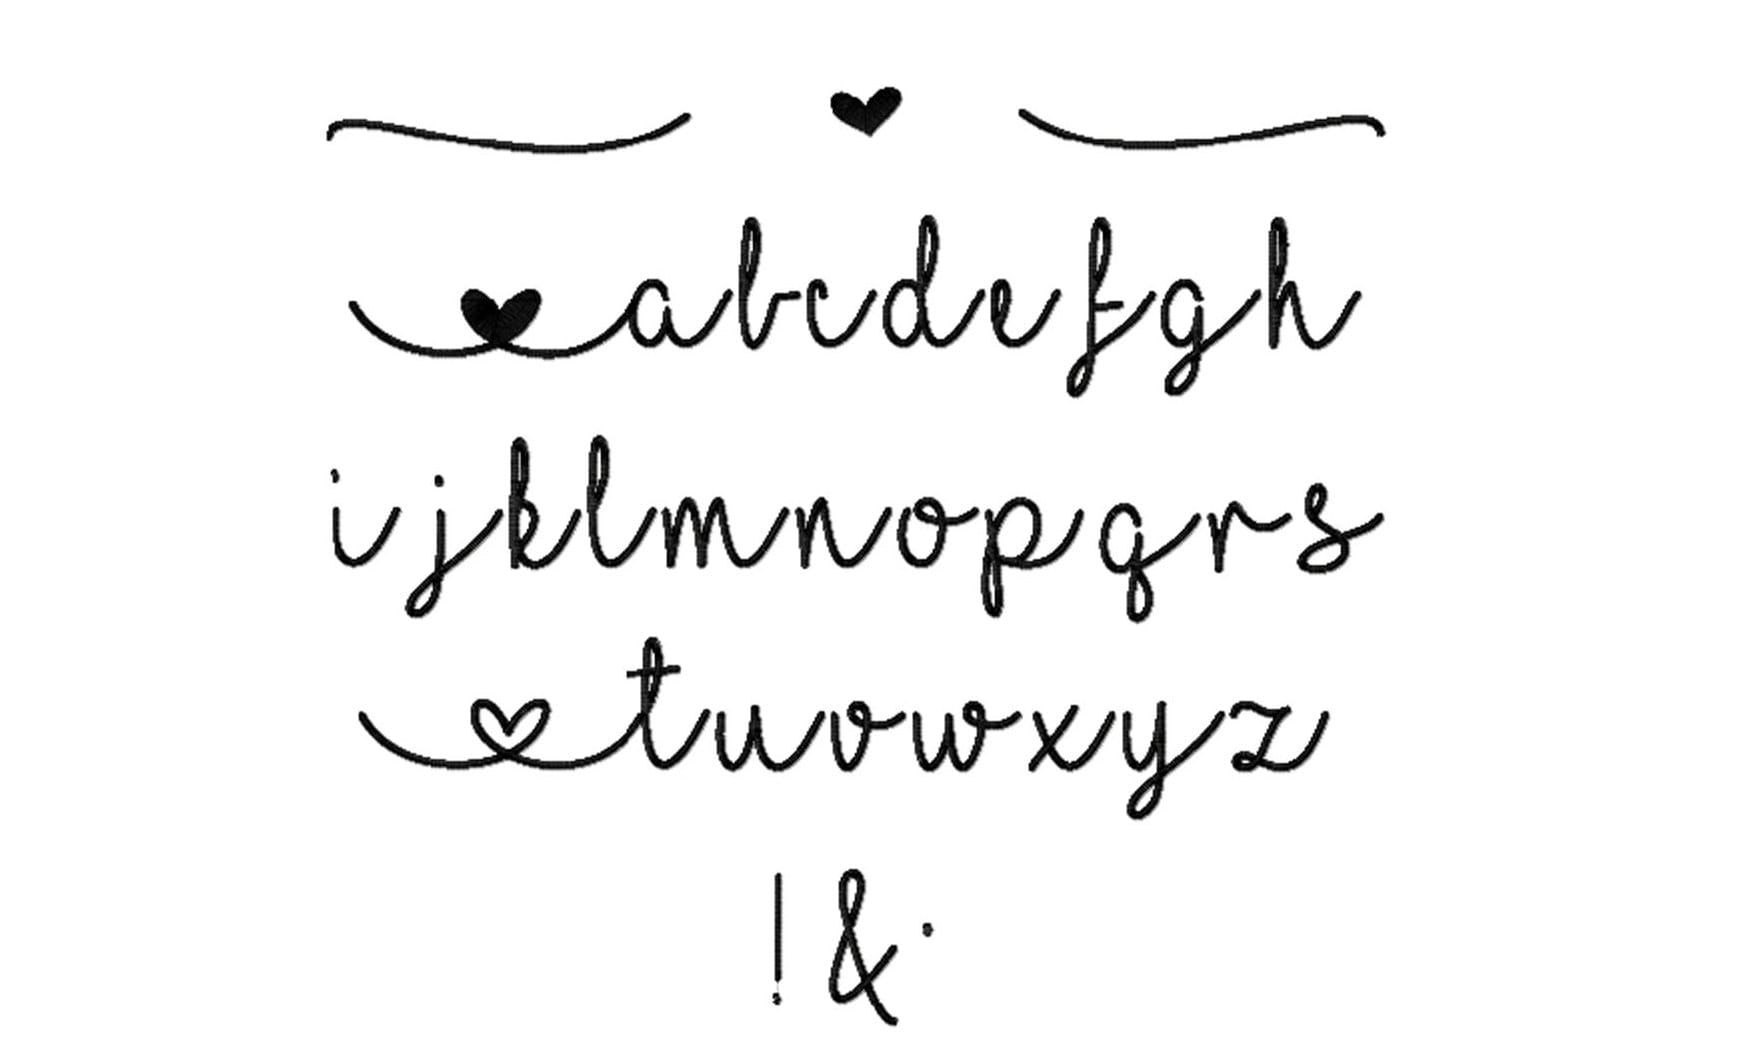 abcdefgh
ijklmnopqrs
tuvwxyz
!&.